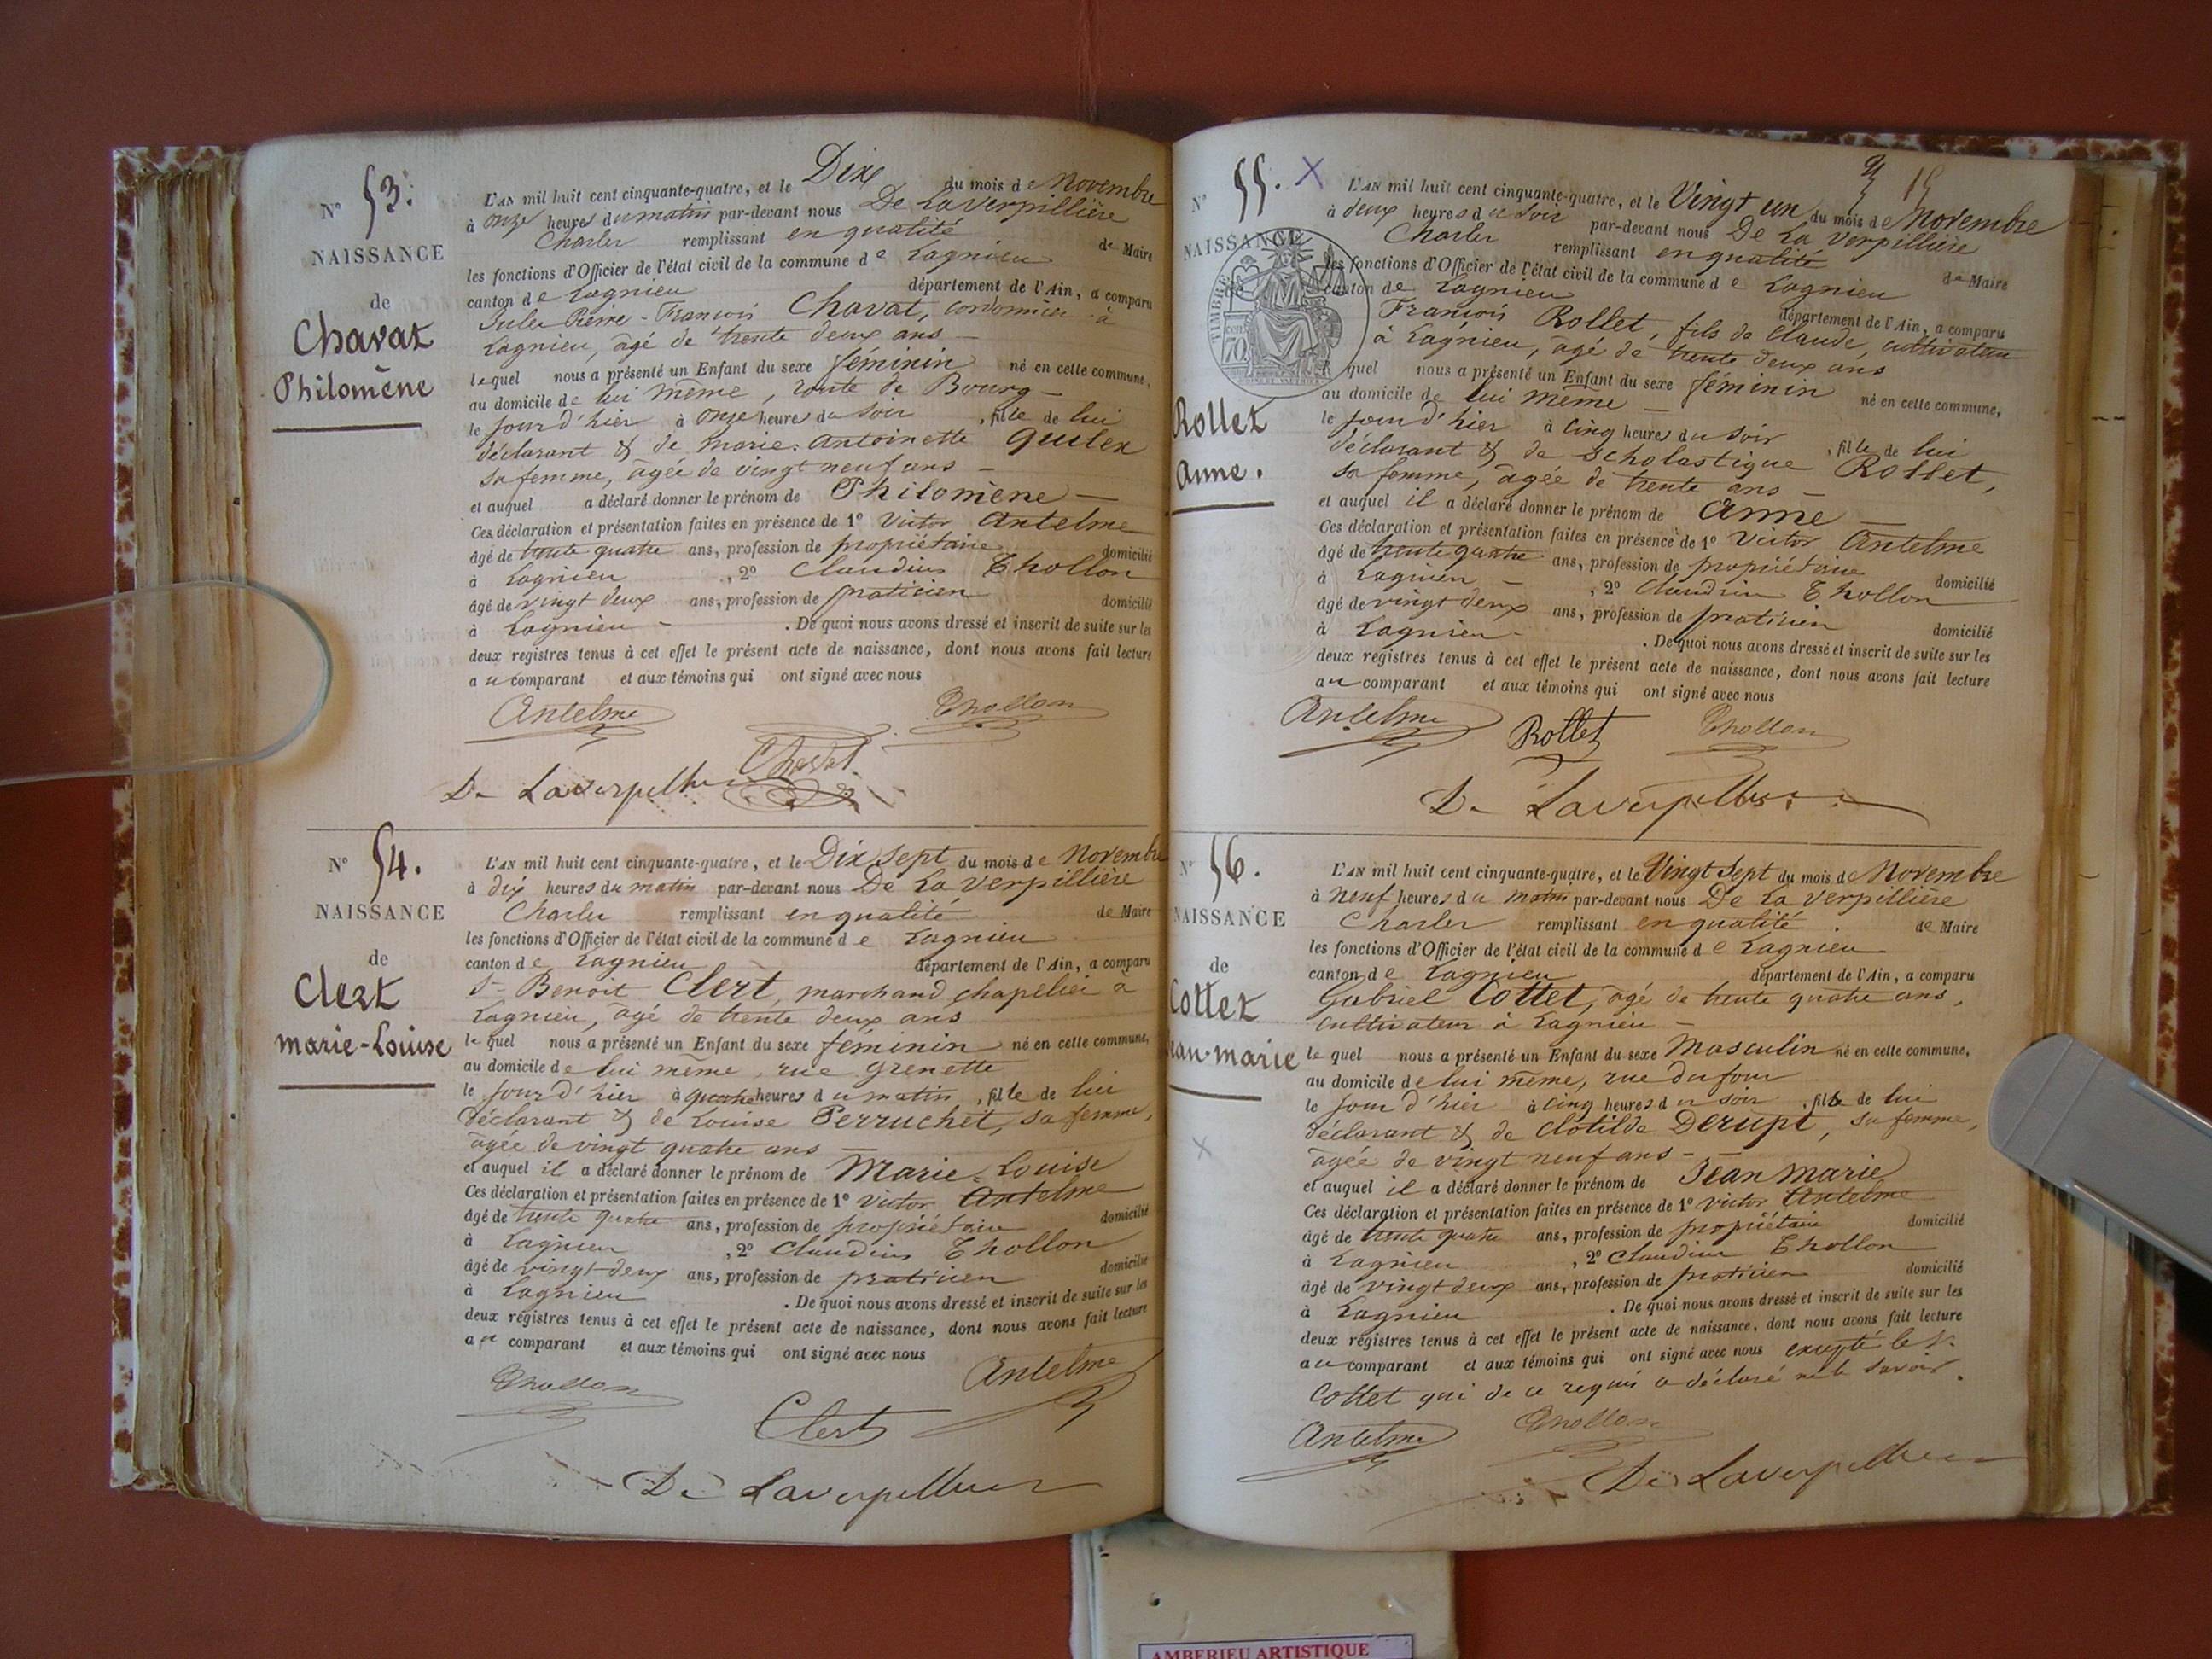 N° 53.
NAISSANCE
de
Chavat
Philomène
L'AN mil huit cent cinquante-quatre, et le Dix du mois de Novembre
à onze heures du matin par-devant nous De La Verpillière
Charles remplissant en qualité de Maire
les fonctions d'Officier de l'état civil de la commune de Lagnieu
canton de Lagnieu département de l'Ain, a comparu
Jules Pierre-François Chavat, cordonnier à
Lagnieu, agé de trente deux ans
lequel nous a présenté un Enfant du sexe féminin né en cette commune,
au domicile de lui même, route de Bourg
le jour d'hier à onze heures du soir, fille de lui
déclarant & de marie-antoinette
sa femme, âgée de vingt neuf ans
et auquel a déclaré donner le prénom de Philomène
Ces déclaration et présentation faites en présence de 1° Victor Antelme
âgé de trente quatre ans, profession de propriétaire domicilié
à Lagnieu, 2° Claudius Thollon
âgé de vingt deux ans, profession de praticien domicilié
à Lagnieu. De quoi nous avons dressé et inscrit de suite sur les
deux registres tenus à cet effet le présent acte de naissance, dont nous avons fait lecture
au comparant et aux témoins qui ont signé avec nous
Antelme Thollon
Chavat
De Laverpillière
N° 54.
NAISSANCE
de
Clert
marie-Louise
L'AN mil huit cent cinquante-quatre, et le Dix Sept du mois de Novembre
à dix heures du matin par-devant nous De La Verpillière
Charles remplissant en qualité de Maire
les fonctions d'Officier de l'état civil de la commune de Lagnieu
canton de Lagnieu département de l'Ain, a comparu
Sr Benoit Clert, marchand chapelier à
Lagnieu, agé de trente deux ans
lequel nous a présenté un Enfant du sexe féminin né en cette commune,
au domicile de lui même, rue Grenette
le jour d'hier à quatre heures du matin, fille de lui
déclarant & de Louise Perruchet, sa femme,
âgée de vingt quatre ans
et auquel il a déclaré donner le prénom de Marie-Louise
Ces déclaration et présentation faites en présence de 1° Victor Antelme
âgé de trente quatre ans, profession de propriétaire domicilié
à Lagnieu, 2° Claudius Thollon
âgé de vingt-deux ans, profession de praticien domicilié
à Lagnieu. De quoi nous avons dressé et inscrit de suite sur les
deux registres tenus à cet effet le présent acte de naissance, dont nous avons fait lecture
au comparant et aux témoins qui ont signé avec nous
Thollon Antelme
Clert
De Laverpillière
N° 55. X
NAISSANCE
TIMBRE
70
Rollet
Anne.
15
L'AN mil huit cent cinquante-quatre, et le Vingt un du mois de Novembre
à deux heures du soir par-devant nous De La Verpillière
Charles remplissant en qualité de Maire
les fonctions d'Officier de l'état civil de la commune de Lagnieu
canton de Lagnieu département de l'Ain, a comparu
François Rollet, fils de Claude, cultivateur
à Lagnieu, âgé de trente deux ans
quel nous a présenté un Enfant du sexe féminin né en cette commune,
au domicile de lui même
le jour d'hier à cinq heures du soir, fille de lui
déclarant & de Scholastique Rollet,
sa femme, âgée de trente ans
et auquel il a déclaré donner le prénom de Anne
Ces déclaration et présentation faites en présence de 1° Victor Antelme
âgé de trente quatre ans, profession de propriétaire domicilié
à Lagnieu, 2° Claudius Thollon
âgé de vingt deux ans, profession de praticien domicilié
à Lagnieu. De quoi nous avons dressé et inscrit de suite sur les
deux registres tenus à cet effet le présent acte de naissance, dont nous avons fait lecture
au comparant et aux témoins qui ont signé avec nous
Antelme Rollet Thollon
De Laverpillière
N° 56.
NAISSANCE
de
Cottet
ean-marie
X
L'AN mil huit cent cinquante-quatre, et le Vingt Sept du mois de Novembre
à neuf heures du matin par-devant nous De La Verpillière
Charles remplissant en qualité de Maire
les fonctions d'Officier de l'état civil de la commune de Lagnieu
canton de Lagnieu département de l'Ain, a comparu
Gabriel Cottet, agé de trente quatre ans,
cultivateur à Lagnieu
lequel nous a présenté un Enfant du sexe Masculin né en cette commune,
au domicile de lui même, rue du four
le jour d'hier à cinq heures du soir, fils de lui
déclarant & de Clotilde Derupt, sa femme,
âgée de vingt neuf ans
et auquel il a déclaré donner le prénom de Jean Marie
Ces déclaration et présentation faites en présence de 1° Victor Antelme
âgé de trente quatre ans, profession de propriétaire domicilié
à Lagnieu, 2° Claudius Thollon
âgé de vingt deux ans, profession de praticien domicilié
à Lagnieu. De quoi nous avons dressé et inscrit de suite sur les
deux registres tenus à cet effet le présent acte de naissance, dont nous avons fait lecture
au comparant et aux témoins qui ont signé avec nous excepté le Sr
Cottet qui de ce requis a déclaré ne le savoir.
Antelme Thollon
De Laverpillière
AMBERIEU ARTISTIQUE